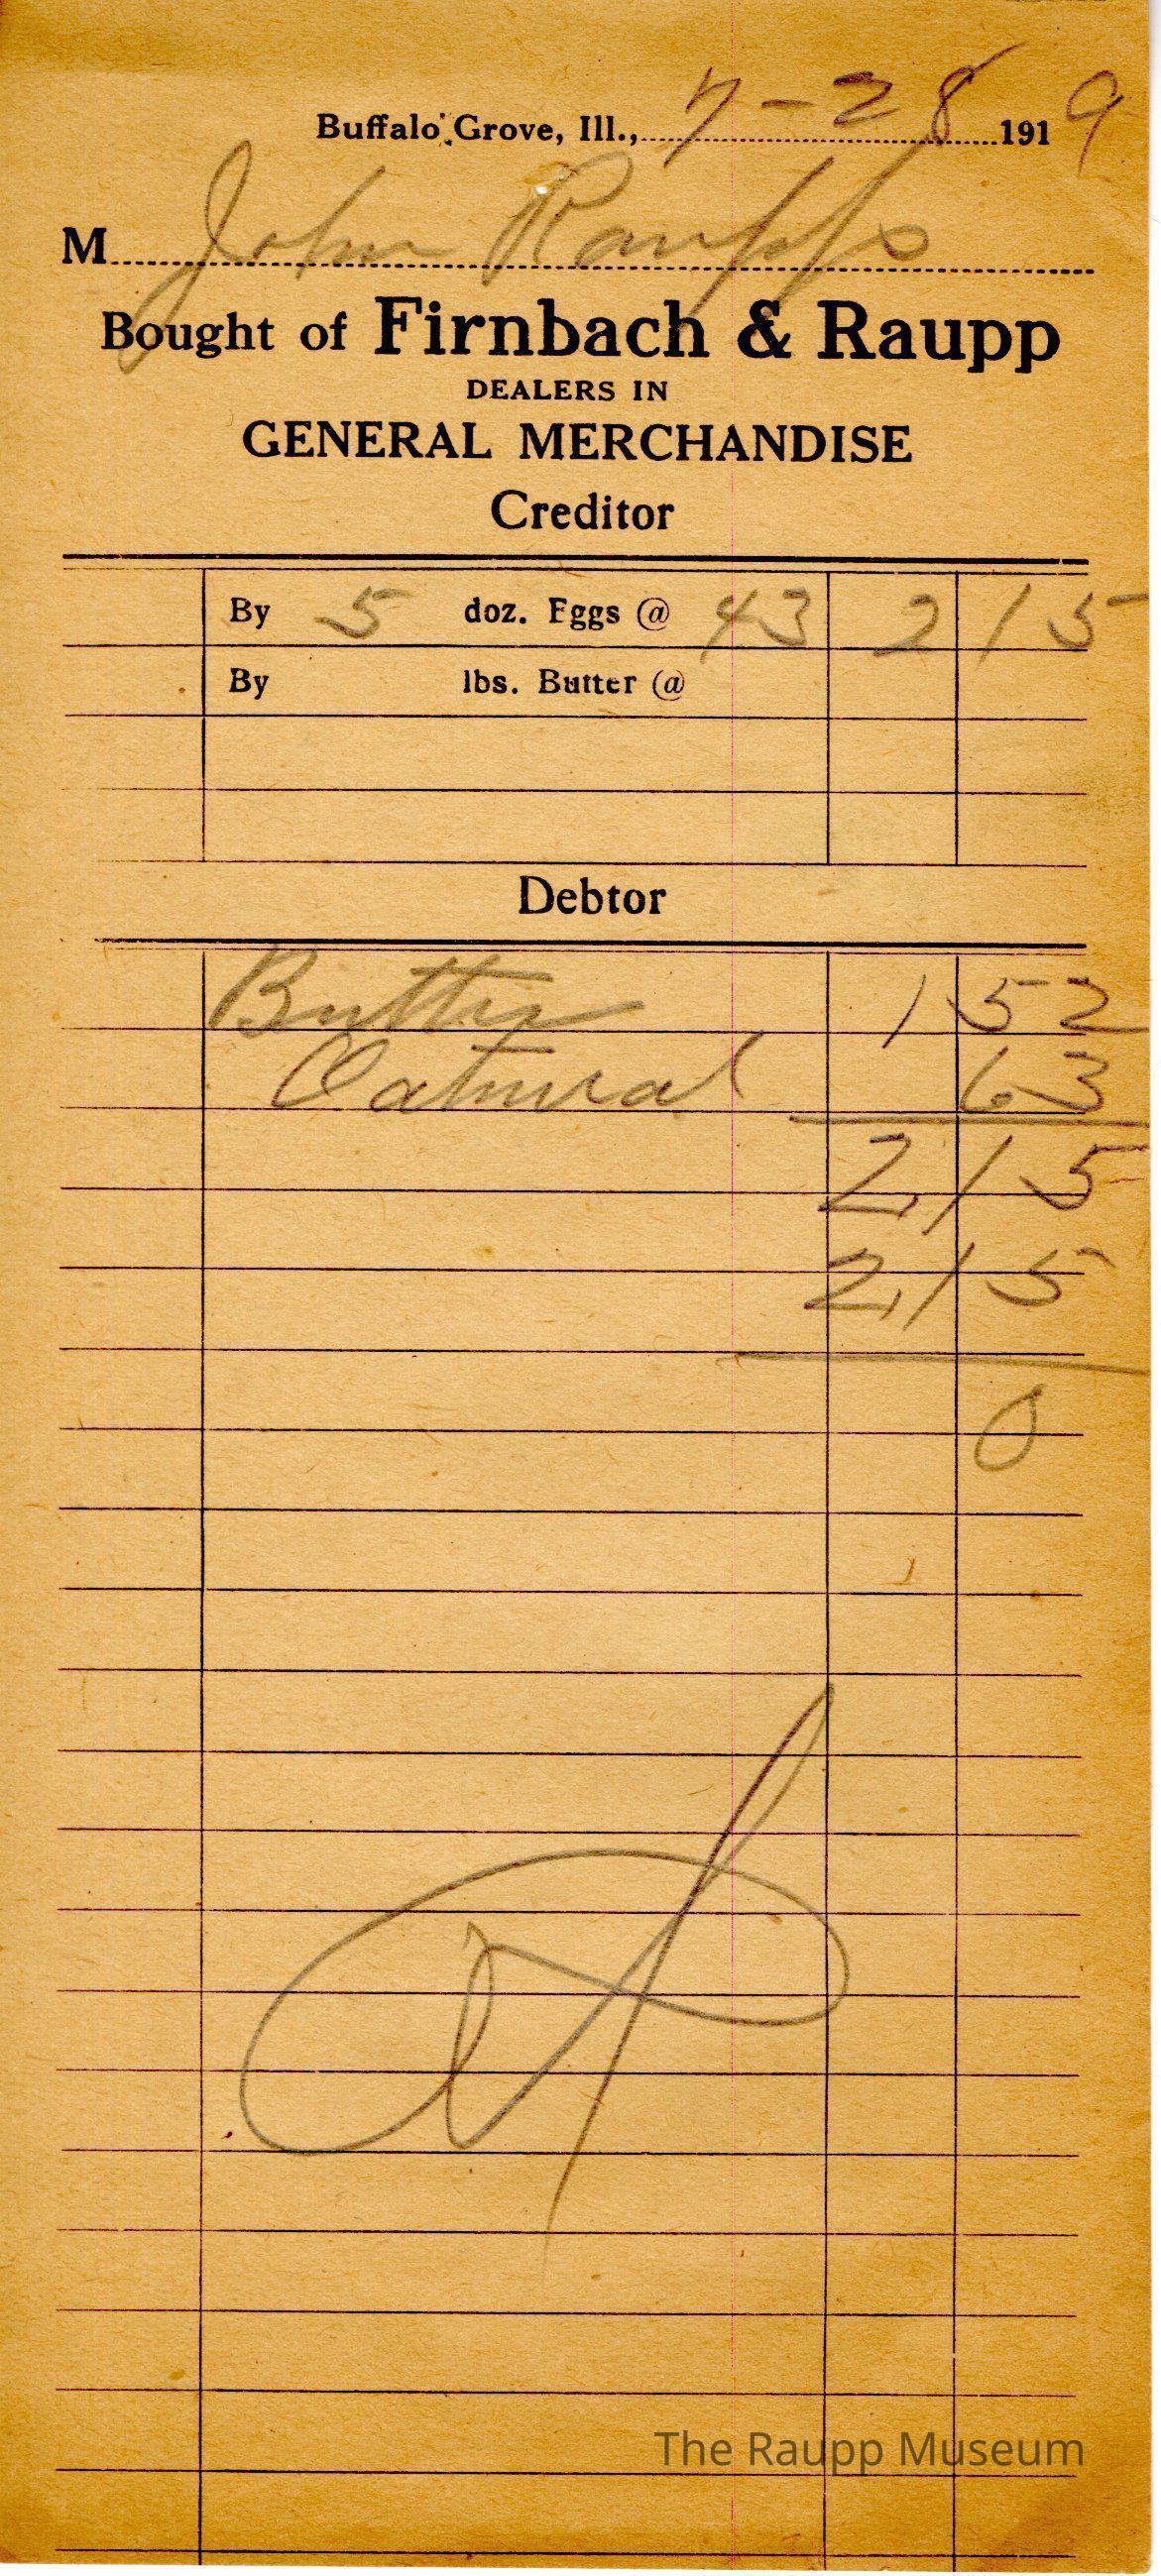 Buffalo Grove, Ill., 7-28 1919
M John Raupp
Bought of Firnbach & Raupp
DEALERS IN
GENERAL MERCHANDISE
Creditor
By 5 doz. Eggs @ 43 2 15
By lbs. Butter @
Debtor
Butter 1 52
Oatmeal 63
2 15
2 15
0
The Raupp Museum